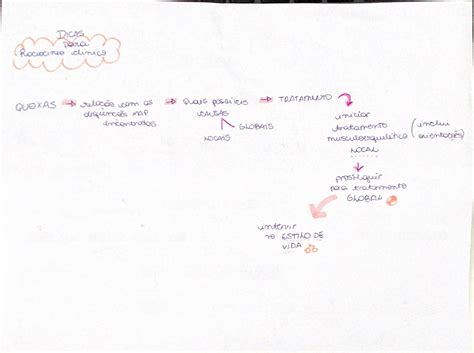 DICAS
para
Raciocínio clínico
QUEIXAS → relação com as → Quais possíveis → TRATAMENTO
disfunções MAP
encontradas
CAUSAS
GLOBAIS
LOCAIS
iniciar
tratamento
musculoesquelético
LOCAL
(inclui
orientações)
prosseguir
para tratamento
GLOBAL
intervir
no ESTILO DE
VIDA